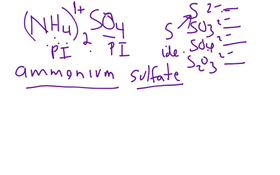 (NH₄)₂¹⁺ SO₄
PI PI
ammonium sulfate
S²⁻
S SO₃²⁻
ide SO₄²⁻
S₂O₃²⁻